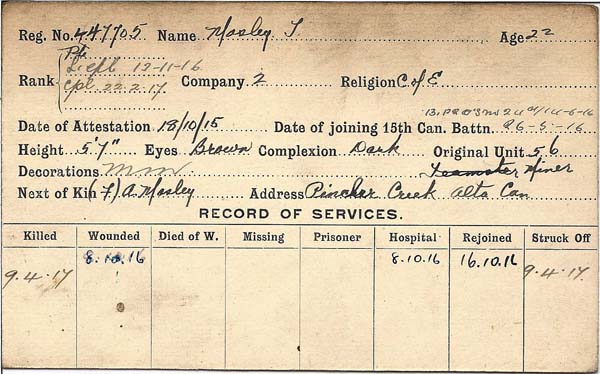 Reg. No. 447705 Name Mosley T. Age 22
Pte
Rank L/Cpl 12-11-16 Company 2 Religion C of E
Cpl 22.2.17.
Date of Attestation 18/10/15 Date of joining 15th Can. Battn. 26-5-16
Height 5'7" Eyes Brown Complexion Dark Original Unit 56
Decorations M M Teamster Miner
Next of Kin (F) A. Mosley Address Pincher Creek Alta Can
RECORD OF SERVICES.
Killed Wounded Died of W. Missing Prisoner Hospital Rejoined Struck Off
9.4.17 8.10.16 8.10.16 16.10.16 9.4.17.